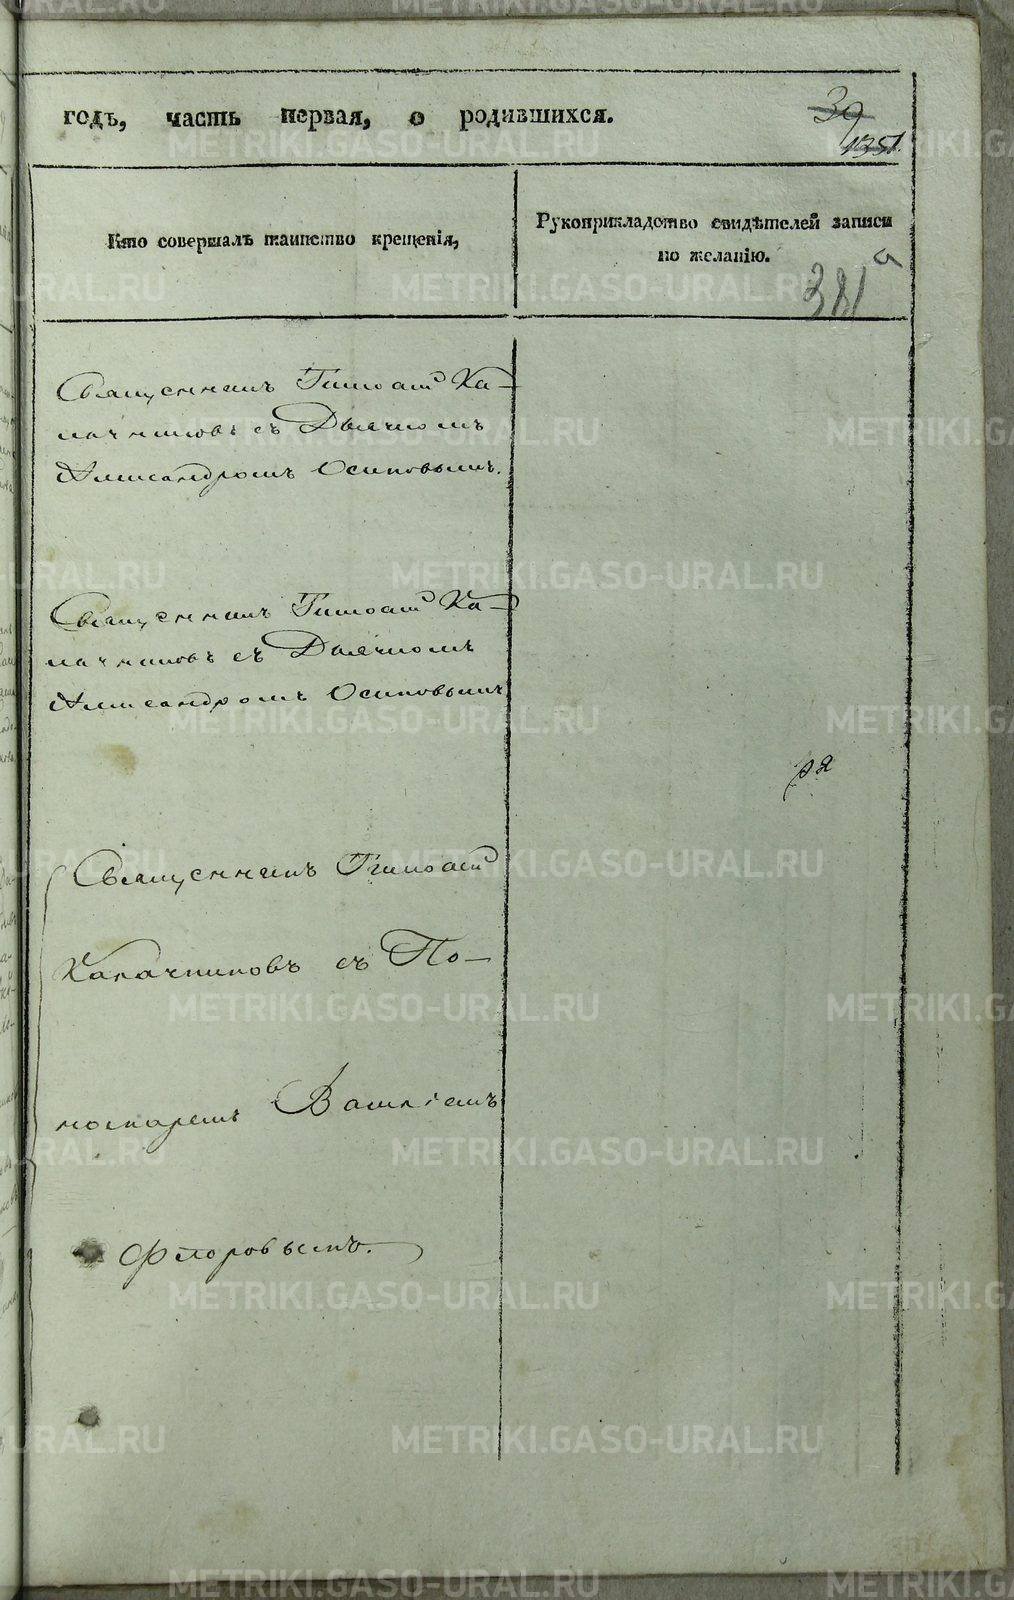 годъ, часть первая, о родившихся.
39
1351.
Кто совершалъ таинство крещенія,
Рукоприкладство свидѣтелей записи
по желанію.
381
Священникъ Тимофей Ка-
лачниковъ съ Дьячкомъ
Александромъ Осиповымъ.
Священникъ Тимофей Ка-
лачниковъ съ Дьячкомъ
Александромъ Осиповымъ
Священникъ Тимофей
Калачниковъ съ По-
номаремъ Васильемъ
Флоровымъ.
METRIKI.GASO-URAL.RU